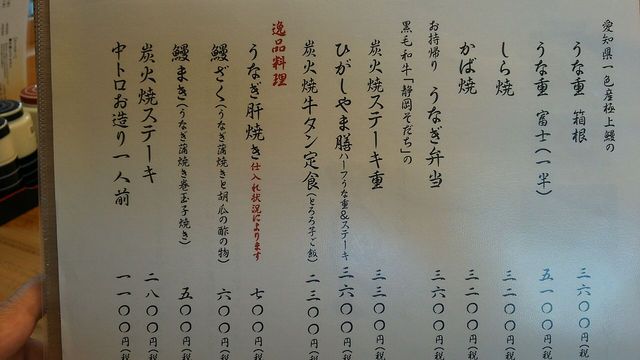 愛知県一色産極上鰻の
うな重 箱根 三六〇〇円(税
うな重 富士(一半) 五一〇〇円(税
しら焼 三二〇〇円(税
かば焼 三二〇〇円(税
お持帰り うなぎ弁当 三六〇〇円(税
黒毛和牛「静岡そだち」の
炭火焼ステーキ重 三三〇〇円(税
ひがしやま膳ハーフうな重&ステーキ 三六〇〇円(税
炭火焼牛タン定食(とろろ子ご飯) 二三〇〇円(税
逸品料理
うなぎ肝焼き仕入れ状況によります 七〇〇円(税
鰻ざく(うなぎ蒲焼きと胡瓜の酢の物) 六〇〇円(税
鰻まき(うなぎ蒲焼き巻玉子焼き) 五〇〇円(税
炭火焼ステーキ 二八〇〇円(税
中トロお造り一人前 一一〇〇円(税